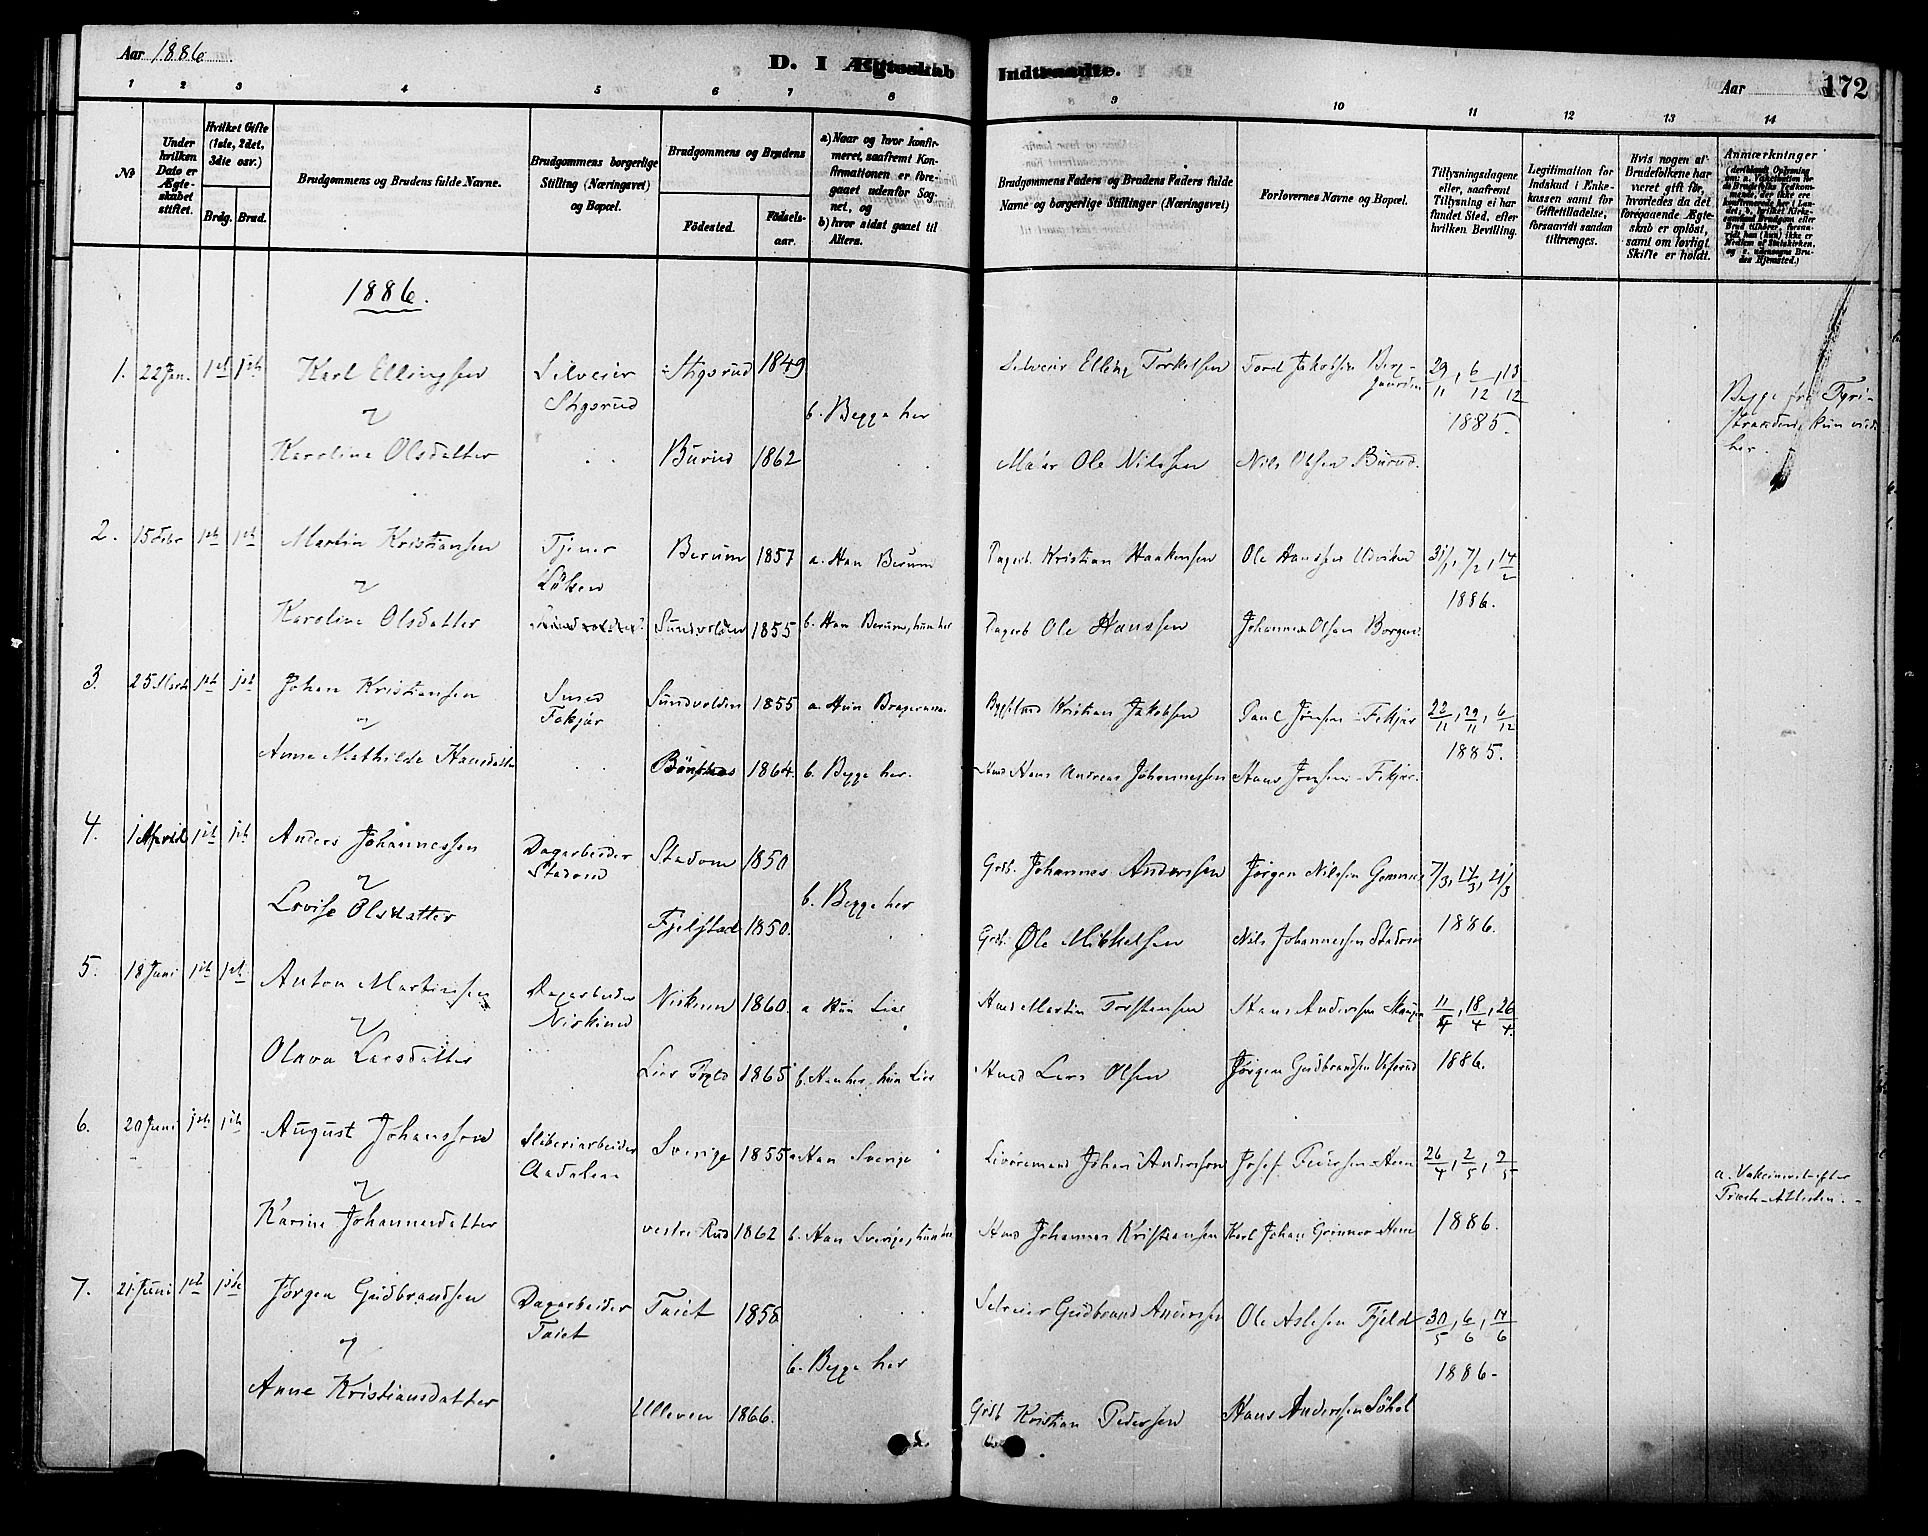 Aar 1886.
D. I Ægteskab Indtraadte.
Aar 172
1 2 3 4 5 6 7 8 9 10 11 12 13 14
No
Under hvilken Dato er Ægteskabet stiftet.
Hvilket Gifte (1ste, 2det, 3die osv.)
Brdg. Brud.
Brudgommens og Brudens fulde Navne.
Brudgommens borgerlige Stilling (Næringsvei) og Bopæl.
Brudgommens og Brudens
Födested.
Födselsaar.
a) Naar og hvor konfirmeret, saafremt Konfirmationen er foregaaet udenfor Sognet, og
b) hvor sidst gaaet til Alters.
Brudgommens Faders og Brudens Faders fulde Navne og borgerlige Stillinger (Næringsvei)
Forlovernes Navne og Bopæl.
Tillysningsdagene eller, saafremt Tillysning ei har fundet Sted, efter hvilken Bevilling.
Legitimation for Indskud i Enkekassen samt for Giftetilladelse, forsaavidt saadan tiltrænges.
Hvis nogen af Brudefolkene har været gift för, hvorledes da det foregaaende Ægteskab er oplöst, samt om lovligt Skifte er holdt.
Anmærkninger
1886.
1. 22 Jan. 1st 1ste Karl Ellingsen Selveier Stigsrud Stigsrud 1849 Selveier Elling Torkelsen Tord Jakobsen 29/11, 6/12, 13/12 1885.
b. Begge her
Begge fra Tyristranden, kun viede her.
Karoline Olsdatter Burud 1862 Ole Nilssen Nils Olsen Burud.
2. 15 Febr 1ste 1ste Martin Kristiansen Tjener Löken Berum 1857 a. Han Berum Dagarb. Kristian Haakensen Ole Hanssen Utviken 31/1, 7/2, 14/2 1886.
Karoline Olsdatter Sundvolden 1855 b. Han Berum, hun her Dagarb Ole Hanssen Johannes Olsen Borgen
3. 25 Marts 1ste 1ste Johan Kristiansen Smed Fekjær Sundvolden 1855 a. Hun Bragernæs. Kristian Jakobsen Paul Jönsen Fekjær 22/11, 29/11, 6/12 1885.
Anne Mathilde Hansdatter Bönsnes 1864. b. Begge her. Hmd Hans Andreas Johannessen Hans Jensen Fekjær.
4. 1 April 1ste 1ste Anders Johannessen Dagarbeider Stadum Stadom 1850 Grdb. Johannes Anderssen Jörgen Nilssen 7/3, 14/3, 21/3 1886.
b. Begge her
Lovise Olsdatter Fjelstad 1850. Grdb. Ole Mikkelsen Nils Johannessen Stadom
5. 18 Juni 1ste 1ste Anton Martinsen Dagarbeider 1860. a Hun Lier Hmd Martin Torstensen Hans Anderssen 11/4, 18/4, 26/4 1886.
Olava Larsdatter Lier 1865 b. Han her, hun Lier Hmd Lars Olsen Jörgen Gudbrandsen
6. 20 Juni 1ste 1ste August Johansson Sliberiarbeider Aadalen Sverige 1855 a. Han Sverige Johan Andersson Josef Hen 26/4, 2/5, 9/5 1886.
a.
Karine Johannesdatter vestre Rud 1862 b. Han Sverige, hun her Hmd Johannes Kristiansen Karl Johan Hen
7. 21 Juni 1ste 1ste Jörgen Gudbrandsen Dagarbeider Taiet Taiet 1858 Selveier Gudbrand Anderssen Ole Aslesen Fjeld 30/5, 6/6, 14/6 1886.
b. Begge her
Anne Kristiansdatter Ulleren 1866. Grdb Kristian Pedersen Hans Anderssen Söhol